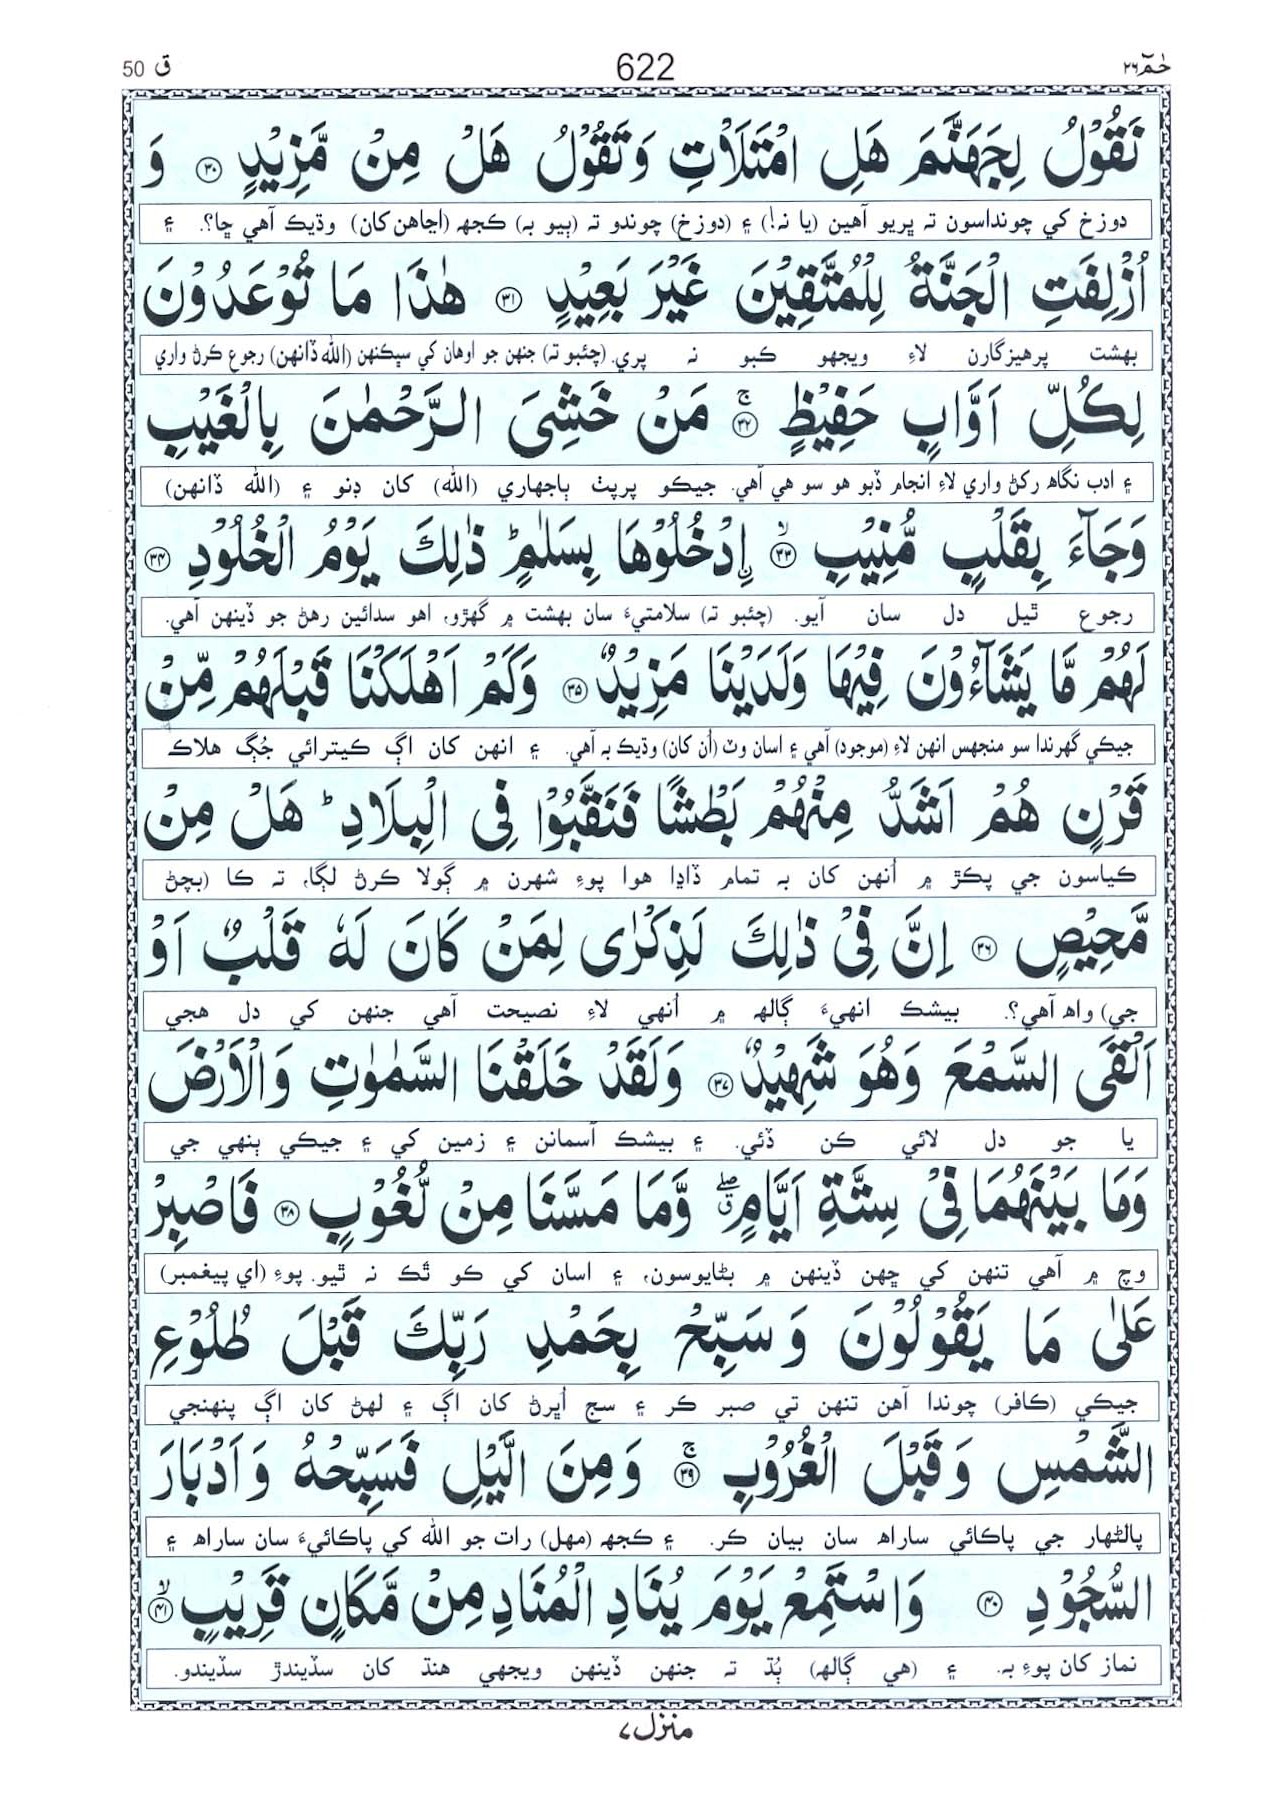 حٰمٓ ٢٦ 622 ق 50
نَقُوْلُ لِجَهَنَّمَ هَلِ امْتَلَاْتِ وَتَقُوْلُ هَلْ مِنْ مَّزِيْدٍ ﴿٣٠﴾ وَ
دوزخ کي چونداسون تہ ڀريو آهين (يا نہ!) ۽ (دوزخ) چوندو تہ (ٻيو بہ) ڪجهہ (اڃاهن کان) وڌيڪ آهي ڇا؟. ۽
اُزْلِفَتِ الْجَنَّةُ لِلْمُتَّقِيْنَ غَيْرَ بَعِيْدٍ ﴿٣١﴾ هٰذَا مَا تُوْعَدُوْنَ
بهشت پرهيزگارن لاءِ ويجهو ڪبو نہ پري. (چئبو تہ) جنهن جو اوهان کي سڀڪنهن (الله ڏانهن) رجوع ڪرڻ واري
لِكُلِّ اَوَّابٍ حَفِيْظٍ ۚ﴿٣٢﴾ مَنْ خَشِىَ الرَّحْمٰنَ بِالْغَيْبِ
۽ ادب نگاهہ رکڻ واري لاءِ انجام ڏبو هو سو هي آهي. جيڪو پرپٺ ٻاجهاري (الله) کان ڊنو ۽ (الله ڏانهن)
وَجَآءَ بِقَلْبٍ مُّنِيْبِ ۙ﴿٣٣﴾ اِۨدْخُلُوْهَا بِسَلٰمٍ ؕ ذٰلِكَ يَوْمُ الْخُلُوْدِ ﴿٣٤﴾
رجوع ٿيل دل سان آيو. (چئبو تہ) سلامتيءَ سان بهشت ۾ گهڙو، اهو سدائين رهڻ جو ڏينهن آهي.
لَهُمْ مَّا يَشَآءُوْنَ فِيْهَا وَلَدَيْنَا مَزِيْدٌ ﴿٣٥﴾ وَكَمْ اَهْلَكْنَا قَبْلَهُمْ مِّنْ
جيڪي گهرندا سو منجهس انهن لاءِ (موجود) آهي ۽ اسان وٽ (اُن کان) وڌيڪ بہ آهي. ۽ انهن کان اڳ ڪيترائي جُڳ هلاڪ
قَرْنٍ هُمْ اَشَدُّ مِنْهُمْ بَطْشًا فَنَقَّبُوْا فِى الْبِلَادِ ؕ هَلْ مِنْ
ڪياسون جي پڪڙ ۾ اُنهن کان بہ تمام ڏاڍا هوا پوءِ شهرن ۾ ڳولا ڪرڻ لڳا، تہ ڪا (بچڻ
مَّحِيْصٍ ﴿٣٦﴾ اِنَّ فِىْ ذٰلِكَ لَذِكْرٰى لِمَنْ كَانَ لَهٗ قَلْبٌ اَوْ
جي) واهہ آهي؟. بيشڪ انهيءَ ڳالهہ ۾ اُنهي لاءِ نصيحت آهي جنهن کي دل هجي
اَلْقَى السَّمْعَ وَهُوَ شَهِيْدٌ ﴿٣٧﴾ وَلَقَدْ خَلَقْنَا السَّمٰوٰتِ وَالْاَرْضَ
يا جو دل لائي ڪن ڏئي. ۽ بيشڪ آسمانن ۽ زمين کي ۽ جيڪي ٻنهي جي
وَمَا بَيْنَهُمَا فِىْ سِتَّةِ اَيَّامٍ ۖ ق وَّمَا مَسَّنَا مِنْ لُّغُوْبٍ ﴿٣٨﴾ فَاصْبِرْ
وچ ۾ آهي تنهن کي ڇهن ڏينهن ۾ بڻايوسون، ۽ اسان کي ڪو ٿڪ نہ ٿيو. پوءِ (اي پيغمبر)
عَلٰى مَا يَقُوْلُوْنَ وَ سَبِّحْ بِحَمْدِ رَبِّكَ قَبْلَ طُلُوْعِ
جيڪي (ڪافر) چوندا آهن تنهن تي صبر ڪر ۽ سج اُڀرڻ کان اڳ ۽ لهڻ کان اڳ پنهنجي
الشَّمْسِ وَ قَبْلَ الْغُرُوْبِ ۚ﴿٣٩﴾ وَ مِنَ الَّيْلِ فَسَبِّحْهُ وَ اَدْبَارَ
پالڻهار جي پاڪائي ساراهہ سان بيان ڪر. ۽ ڪجهہ (مهل) رات جو الله کي پاڪائيءَ سان ساراهہ ۽
السُّجُوْدِ ﴿٤٠﴾ وَ اسْتَمِعْ يَوْمَ يُنَادِ الْمُنَادِ مِنْ مَّكَانٍ قَرِيْبٍ ۙ﴿٤١﴾
نماز کان پوءِ بہ. ۽ (هي ڳالهہ) ٻُڌ تہ جنهن ڏينهن ويجهي هنڌ کان سڏيندڙ سڏيندو.
منزل ٧